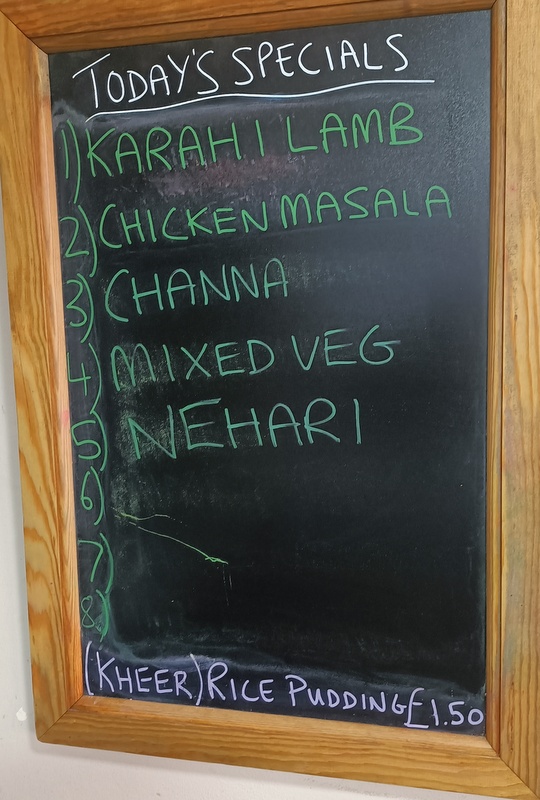 TODAY'S SPECIALS
1) KARAHI LAMB
2) CHICKEN MASALA
3) CHANNA
4) MIXED VEG
5) NEHARI
6)
7)
8)
(KHEER) RICE PUDDING £1.50